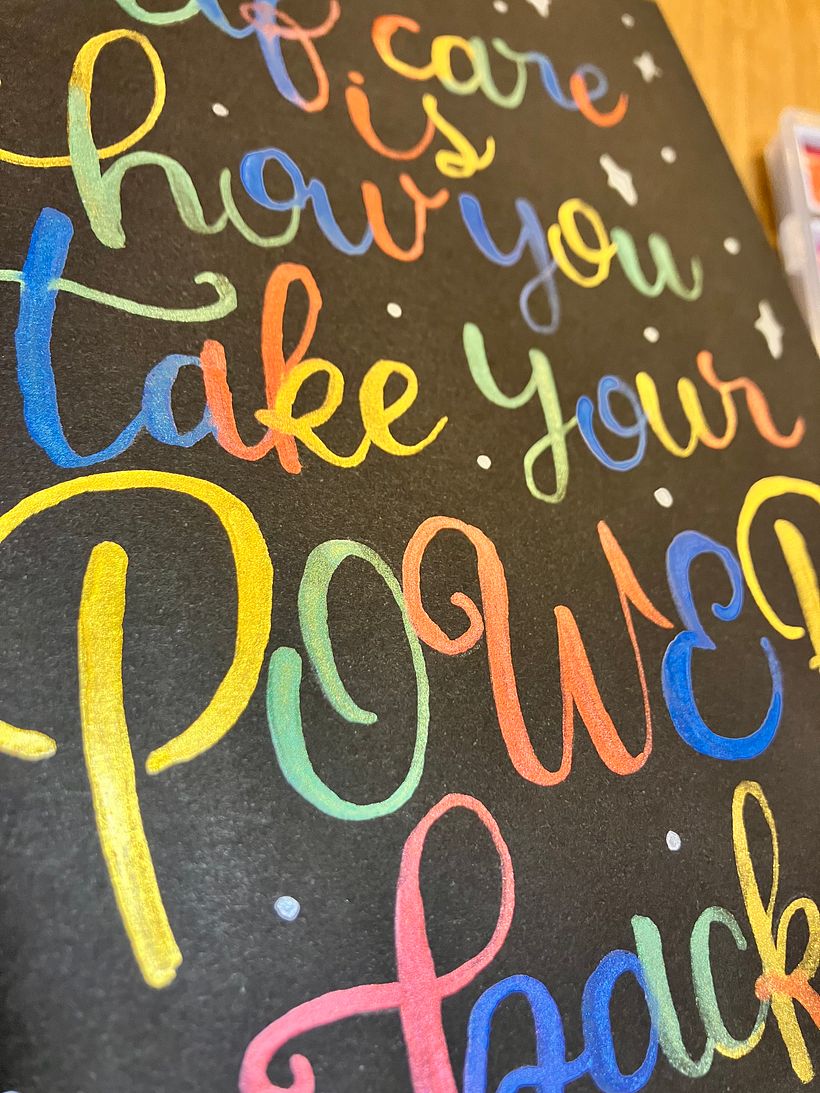 care
is
how you
take your
POWER
back